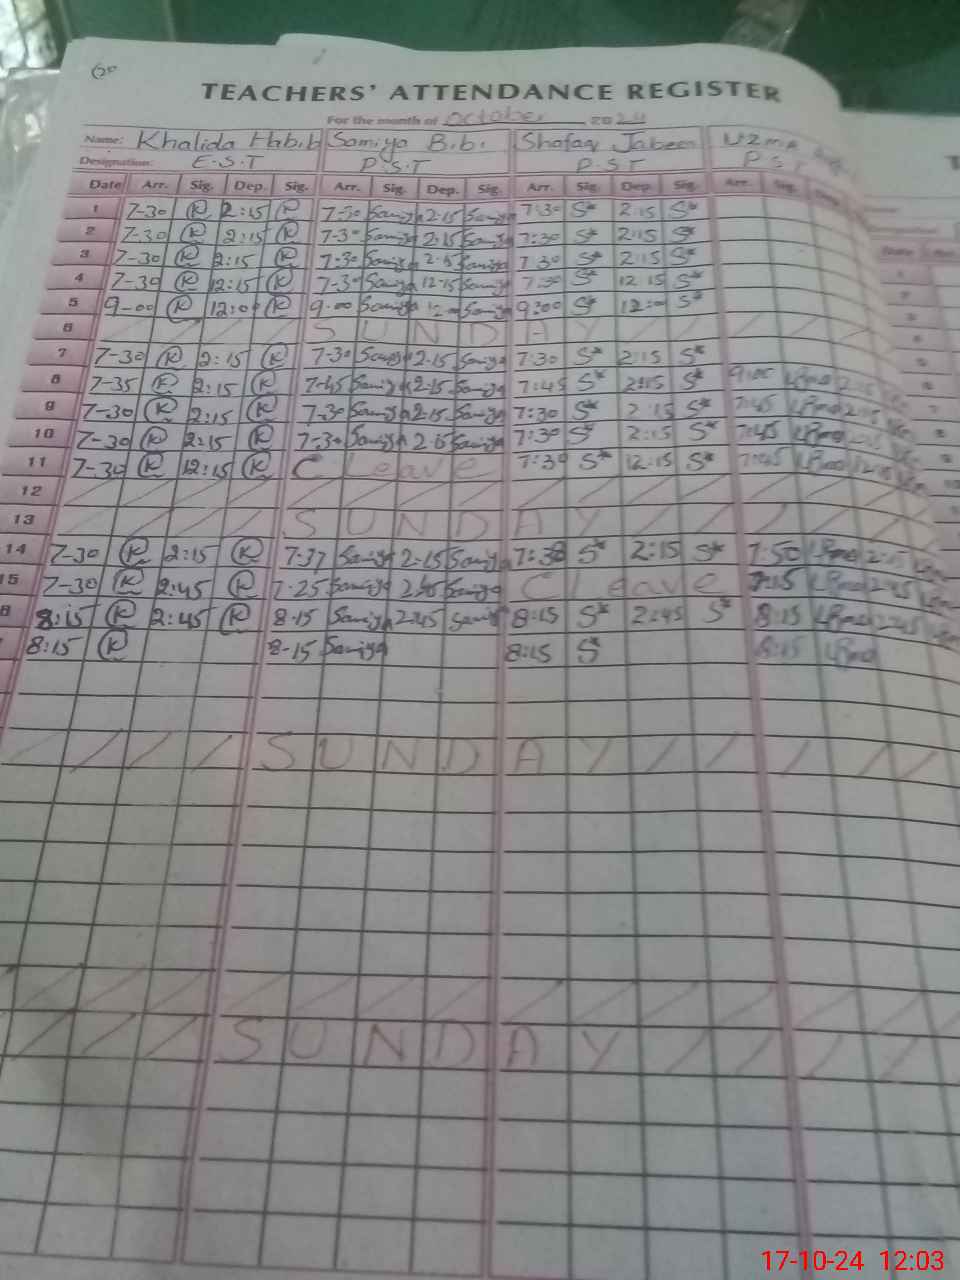 TEACHERS' ATTENDANCE REGISTER
For the month of October 2024
Name: Khalida Habib Samiya Bibi Shafaq Jabeen Uzma
Designation: E.S.T P.S.T P.S.T P.S.T
Date Arr. Sig. Dep. Sig. Arr. Sig. Dep. Sig. Arr. Sig. Dep. Sig. Arr. Sig.
1 7-30 K 2:15 K 7-30 Samiya 2-15 Samiya 7:30 S* 2:15 S*
2 7-30 K 2:15 K 7-30 Samiya 2-15 Samiya 7:30 S* 2:15 S*
3 7-30 K 2:15 K 7-30 Samiya 2-15 Samiya 7:30 S* 2:15 S*
4 7-30 K 12:15 K 7-30 Samiya 12-15 Samiya 7:30 S* 12:15 S*
5 9-00 K 12:00 K 9-00 Samiya 12-00 Samiya 9:00 S* 12:00 S*
6 SUNDAY
7 7-30 K 2:15 K 7-30 Samiya 2-15 Samiya 7:30 S* 2:15 S*
8 7-35 K 2:15 K 7-45 Samiya 2-15 Samiya 7:45 S* 2:15 S*
9 7-30 K 2:15 K 7-30 Samiya 2-15 Samiya 7:30 S* 2:15 S* 7:45
10 7-30 K 2:15 K 7-30 Samiya 2-15 Samiya 7:30 S* 2:15 S* 7:45
11 7-30 K 12:15 K C Leave 7:30 S* 12:15 S* 7:45 12:15
12
13 SUNDAY
14 7-30 K 2:15 K 7-37 Samiya 2-15 Samiya 7:38 S* 2:15 S* 7:50 2:15
15 7-30 K 2:45 K 7-25 Samiya 2:45 Samiya C Leave 7:15 2:45
8:15 K 2:45 K 8-15 Samiya 2:45 Samiya 8:15 S* 2:45 S* 8:15 2:45
8:15 K 8-15 Samiya 8:15 S* 8:15
SUNDAY
SUNDAY
17-10-24 12:03